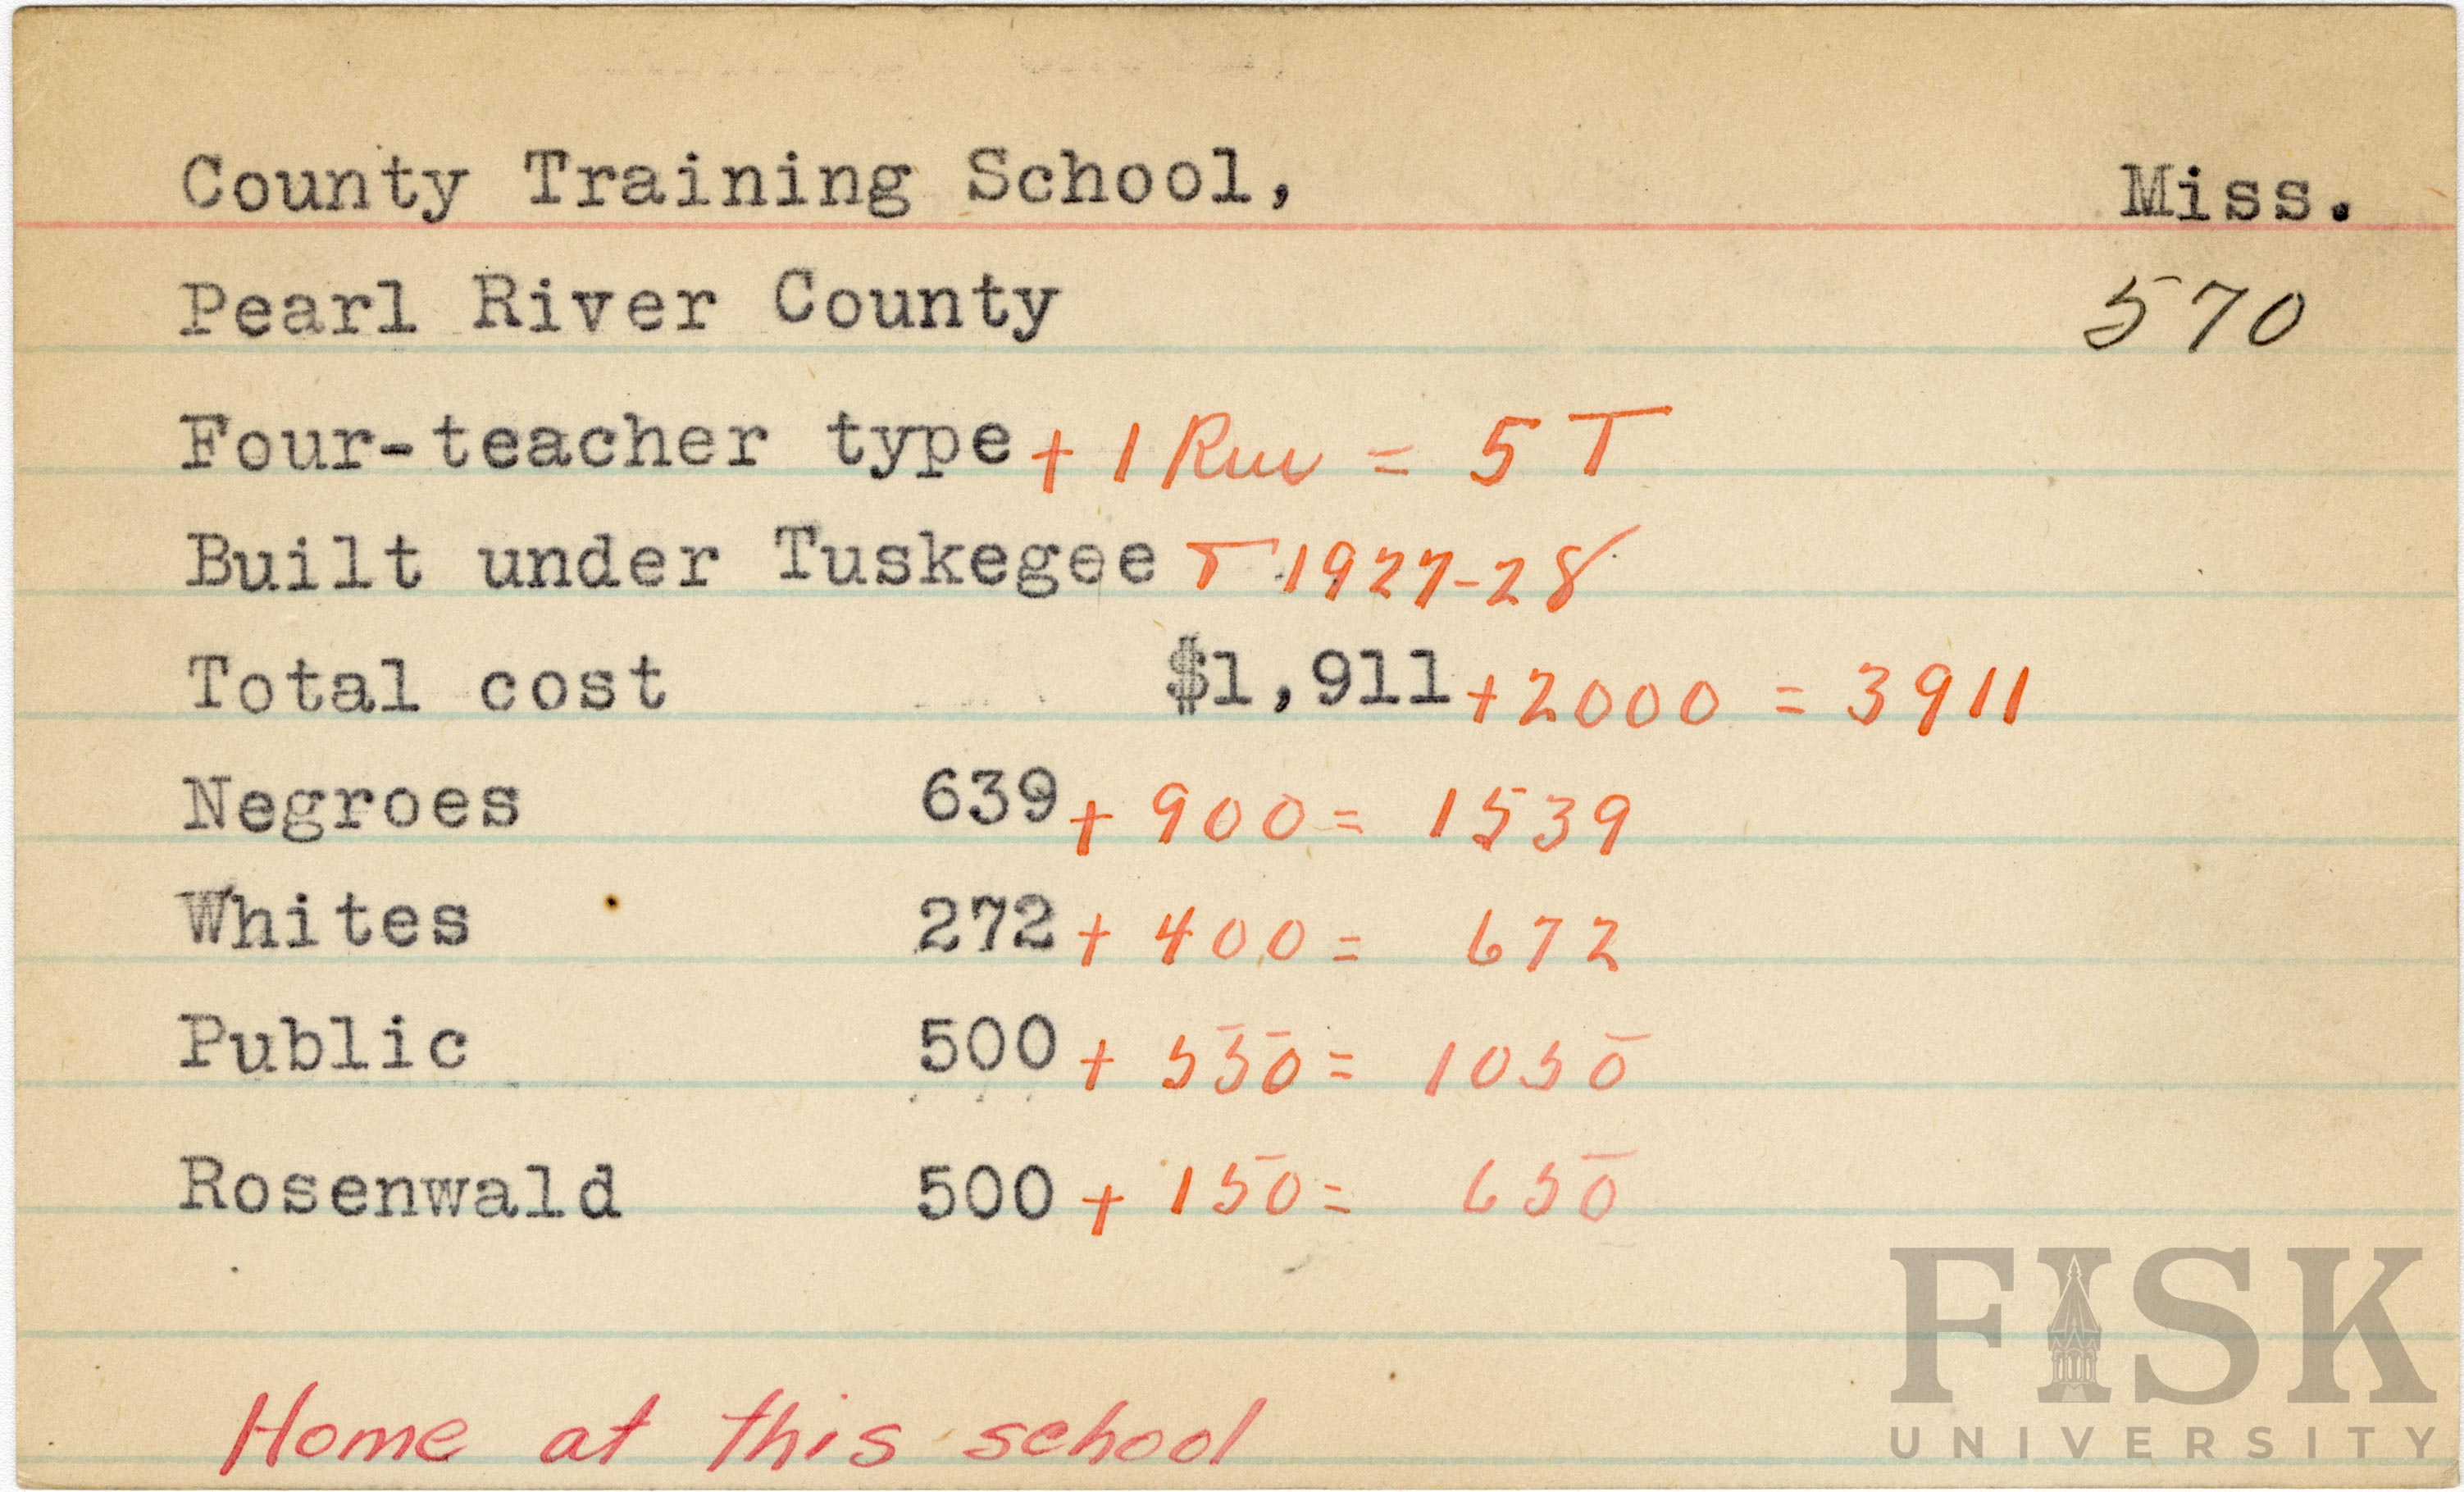 County Training School, Miss.
Pearl River County 570
Four-teacher type + 1 Rm = 5 T
Built under Tuskegee T 1927-28
Total cost $1,911 + 2000 = 3911
Negroes 639 + 900 = 1539
Whites 272 + 400 = 672
Public 500 + 550 = 1050
Rosenwald 500 + 150 = 650
Home at this school
FISK
UNIVERSITY